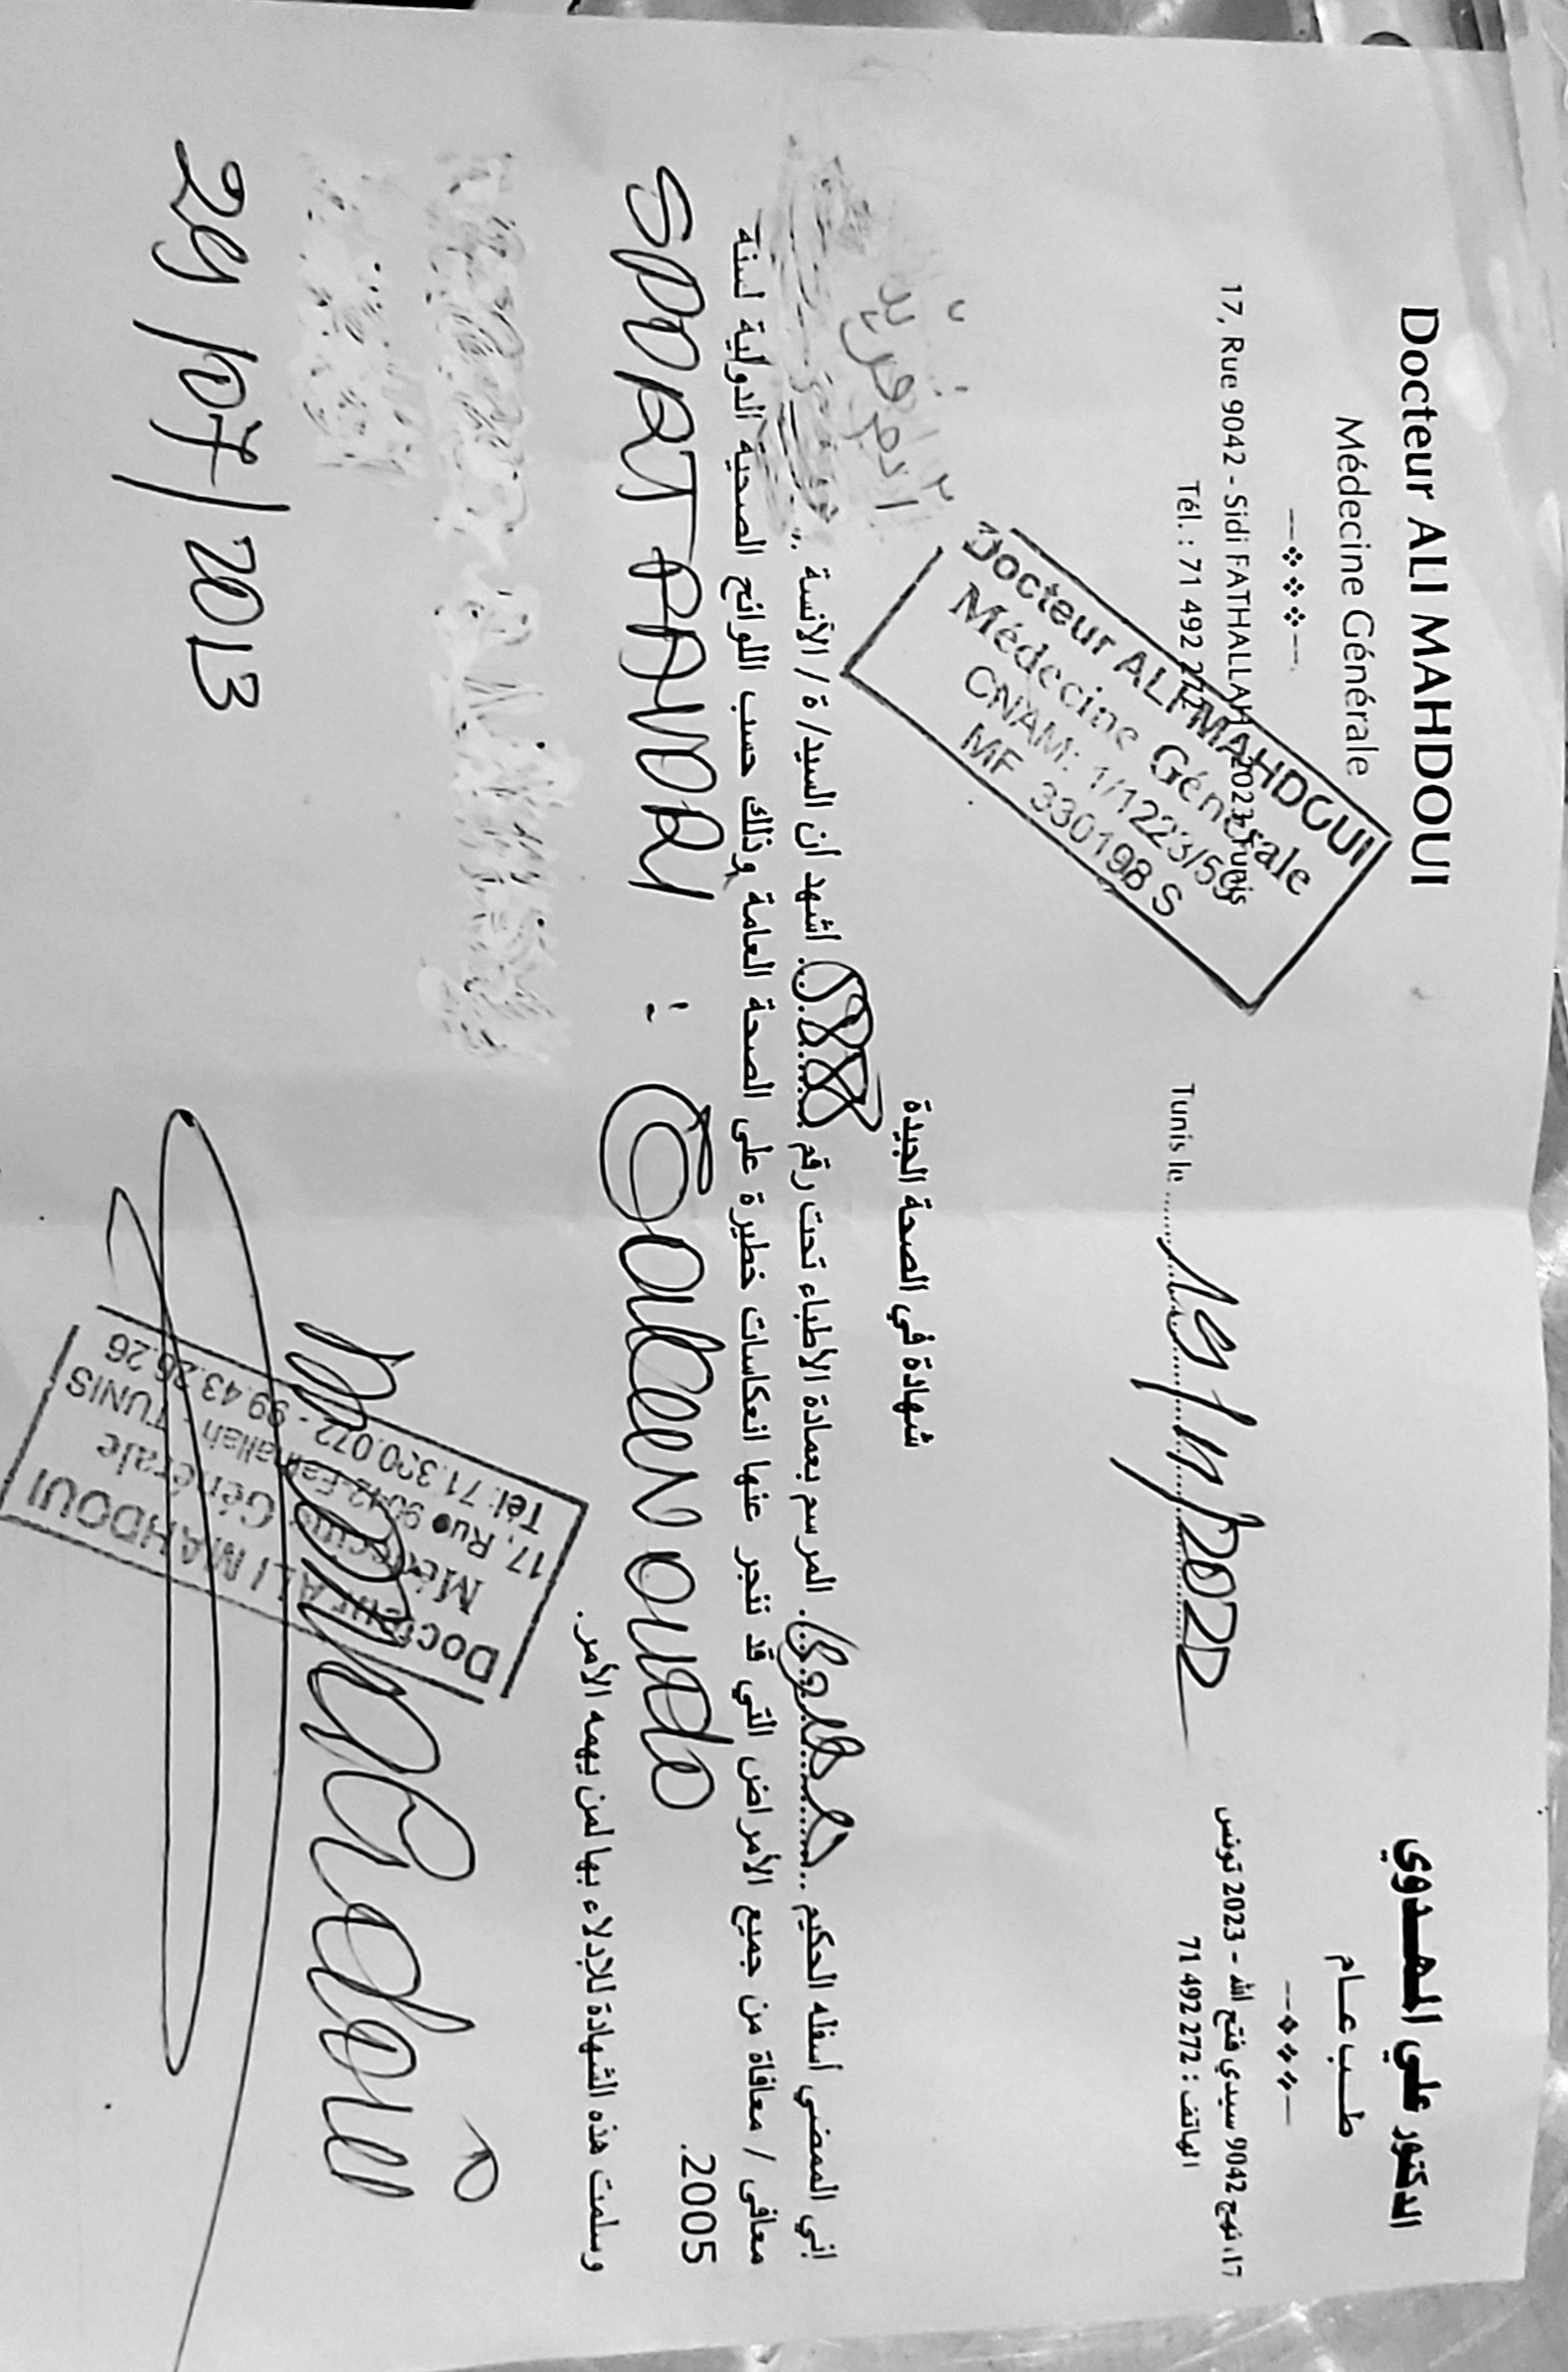 Docteur ALI MAHDOUI
Médecine Générale
17, Rue 9042 - Sidi FATHALLAH 2023 Tunis
Tél. : 71 492 272
الدكتور علي المهدوي
طب عام
17، نهج 9042 سيدي فتح الله - 2023 تونس
الهاتف : 71 492 272
Docteur ALI MAHDOUI
Médecine Générale
CNAM: 1/1223/59
MF 330198 S
Tunis le 19/11/2022
شهادة في الصحة الجيدة
إني الممضي أسفله الحكيم المرسم بعمادة الأطباء تحت رقم أشهد أن السيد/ ة / الآنسة
معافى / معافاة من جميع الأمراض التي قد تنجر عنها انعكاسات خطيرة على الصحة العامة وذلك حسب اللوائح الصحية الدولية لسنة
2005.
SPORT :
وسلمت هذه الشهادة للإدلاء بها لمن يهمه الأمر.
29/07/2013
Docteur ALI MAHDOUI
Médecine Générale
17, Rue 9042 Fathallah - TUNIS
Tél: 71.390.072 - 99.43.26.26